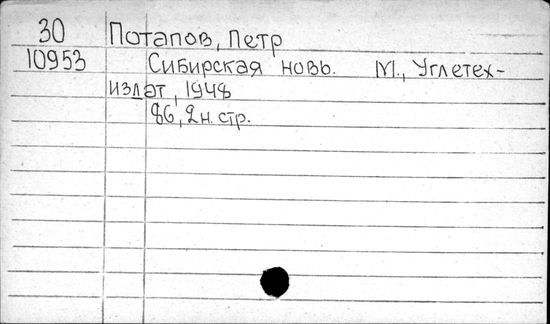 30 Потапов, Петр
10953 Сибирская новь. М., Углетех-
издат, 1948
86, 2 н. стр.